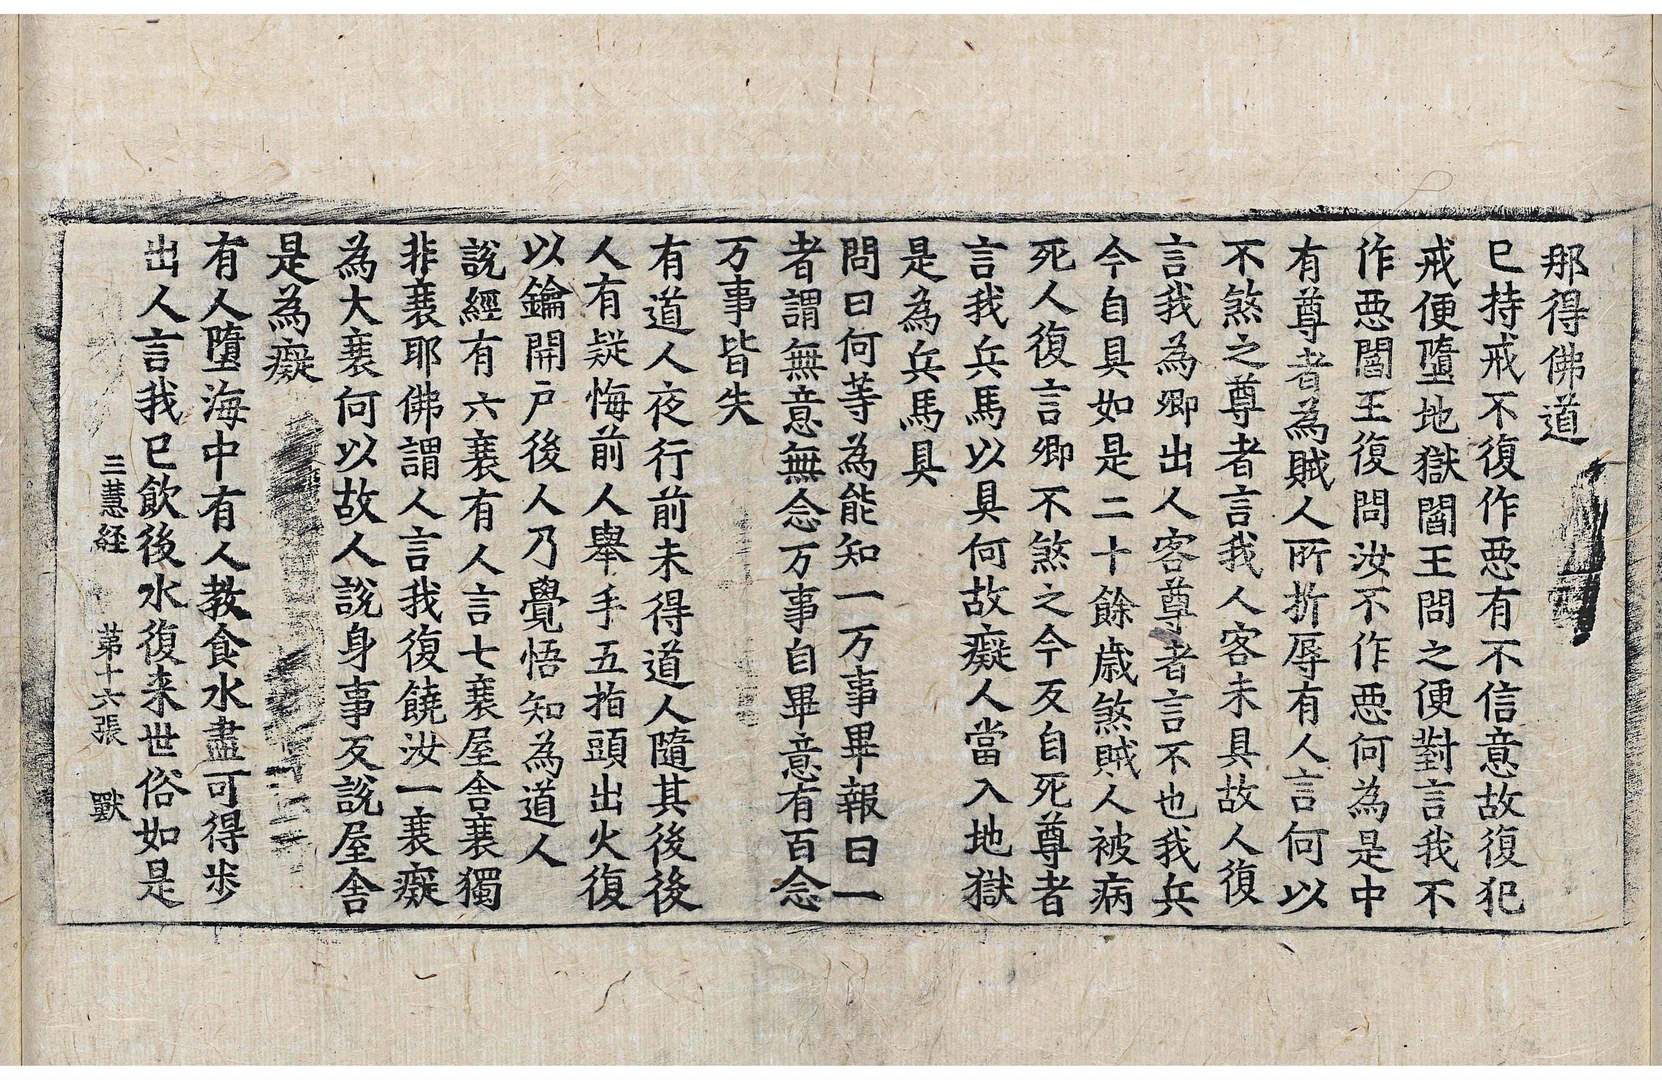 那得佛道
已持戒不復作惡有不信意故復犯
戒便墮地獄閻王問之便對言我不
作惡閻王復問汝不作惡何為是中
有尊者為賊人所折辱有人言何以
不煞之尊者言我人客未具故人復
言我為卿出人客尊者言不也我兵
今自具如是二十餘歲煞賊人被病
死人復言卿不煞之今反自死尊者
言我兵馬以具何故癡人當入地獄
是為兵馬具
問曰何等為能知一万事畢報曰一
者謂無意無念万事自畢意有百念
万事皆失
有道人夜行前未得道人隨其後後
人有疑悔前人舉手五指頭出火復
以鑰開戶後人乃覺悟知為道人
說經有六衰有人言七衰屋舍衰獨
非衰耶佛謂人言我復饒汝一衰癡
為大衰何以故人說身事反說屋舍
是為癡
有人墮海中有人教食水盡可得步
出人言我已飲後水復来世俗如是
三慧経 苐十六張 獸